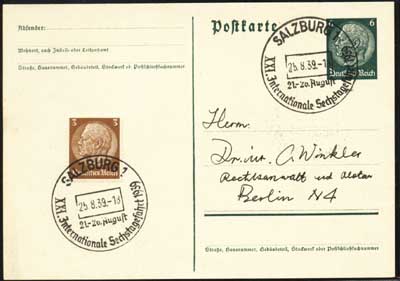 Absender:
Wohnort, auch Zustell- oder Leitpostamt
Straße, Hausnummer, Gebäudeteil, Stockwerk od. Postschließfachnummer
3
Deutsches Reich
SALZBURG 1
25.8.39.-18
21.-26. August
XXI. Internationale Sechstagefahrt 1939
Postkarte
6
Deutsches Reich
SALZBURG 1
25.8.39.-1
21.-26. August
XXI. Internationale Sechstagefahrt
Herrn
Dr. iur. Winkler
Rechtsanwalt und Notar
Berlin N4
Straße, Hausnummer, Gebäudeteil, Stockwerk oder Postschließfachnummer